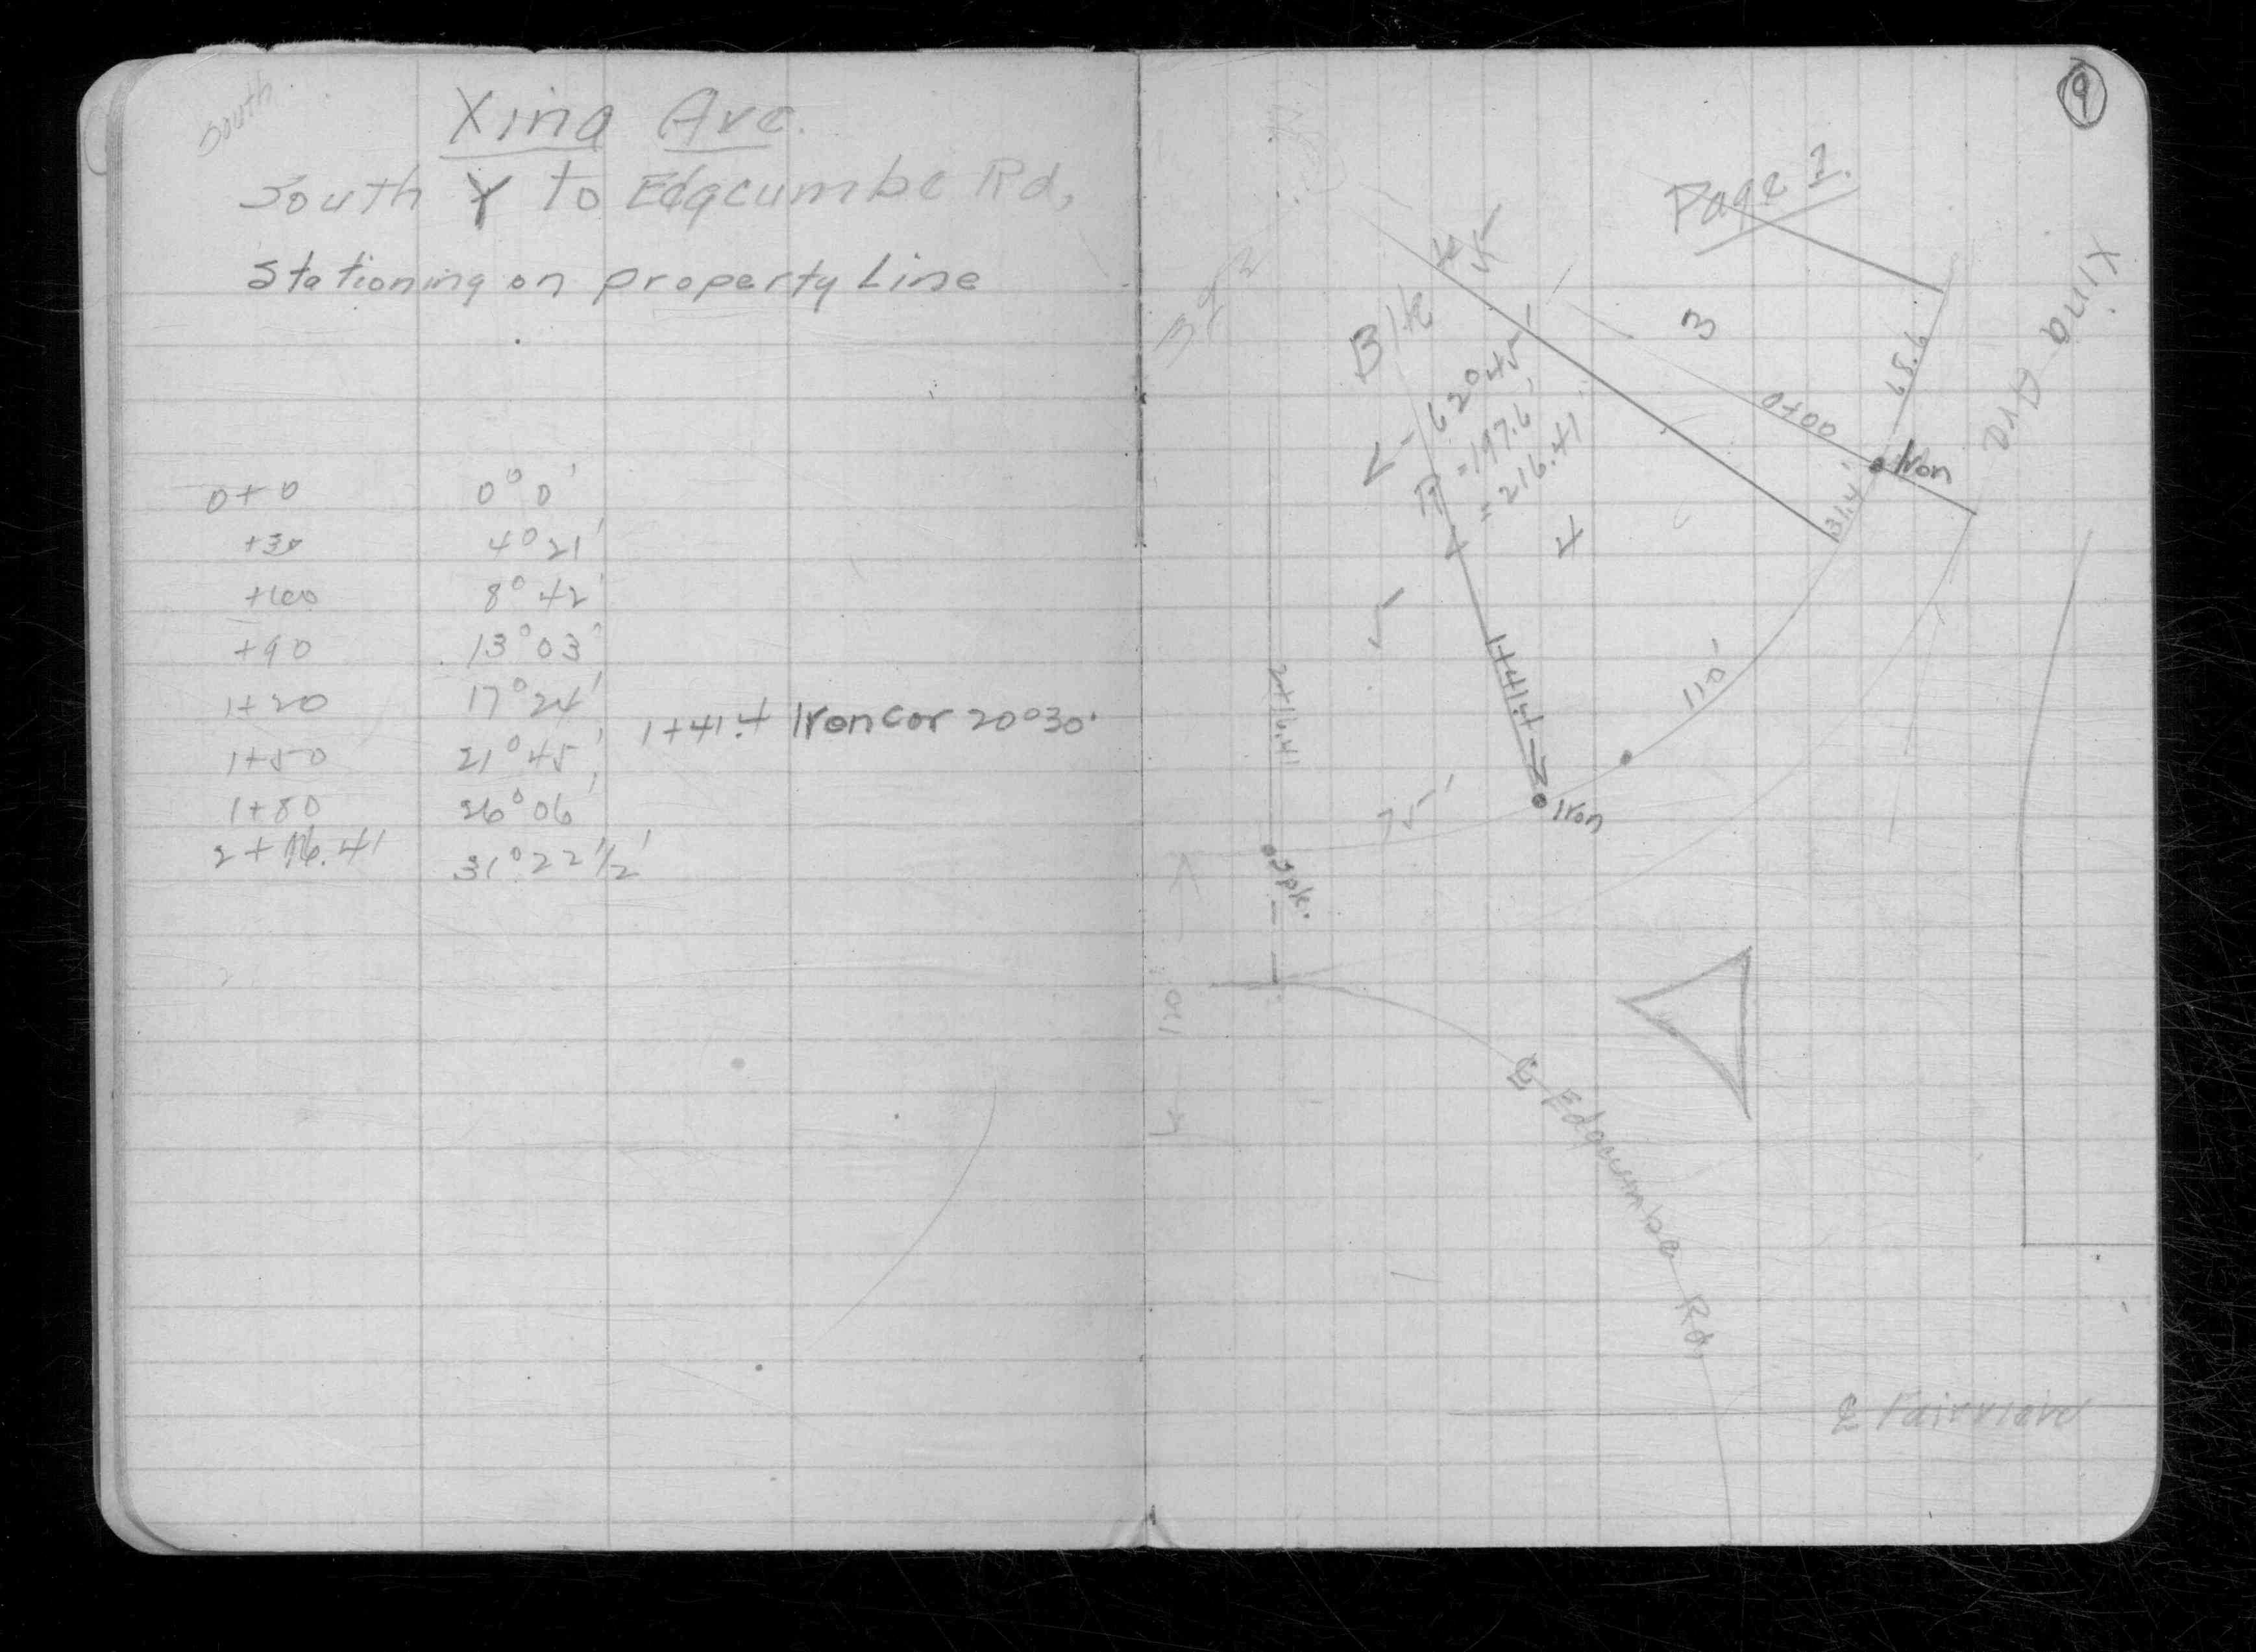 South
Xina Ave.
South Y to Edgcumbe Rd,
Stationing on property Line
0+0 0°0'
+30 4°21'
+60 8°42'
+90 13°03'
1+20 17°24'
1+41.4 Iron Cor 20°30'
1+50 21°45'
1+80 26°06'
2+16.41 31°22 1/2'
9
Page 2.
Xina Ave
Blk
3
68.6
0+00
Iron
31.4'
62°45'
R = 197.6'
= 216.41'
4
5
1+41.4
110'
2+16.41
75'
Iron
Spk.
120
℄ Edgcumbe Rd.
℄ Fairview